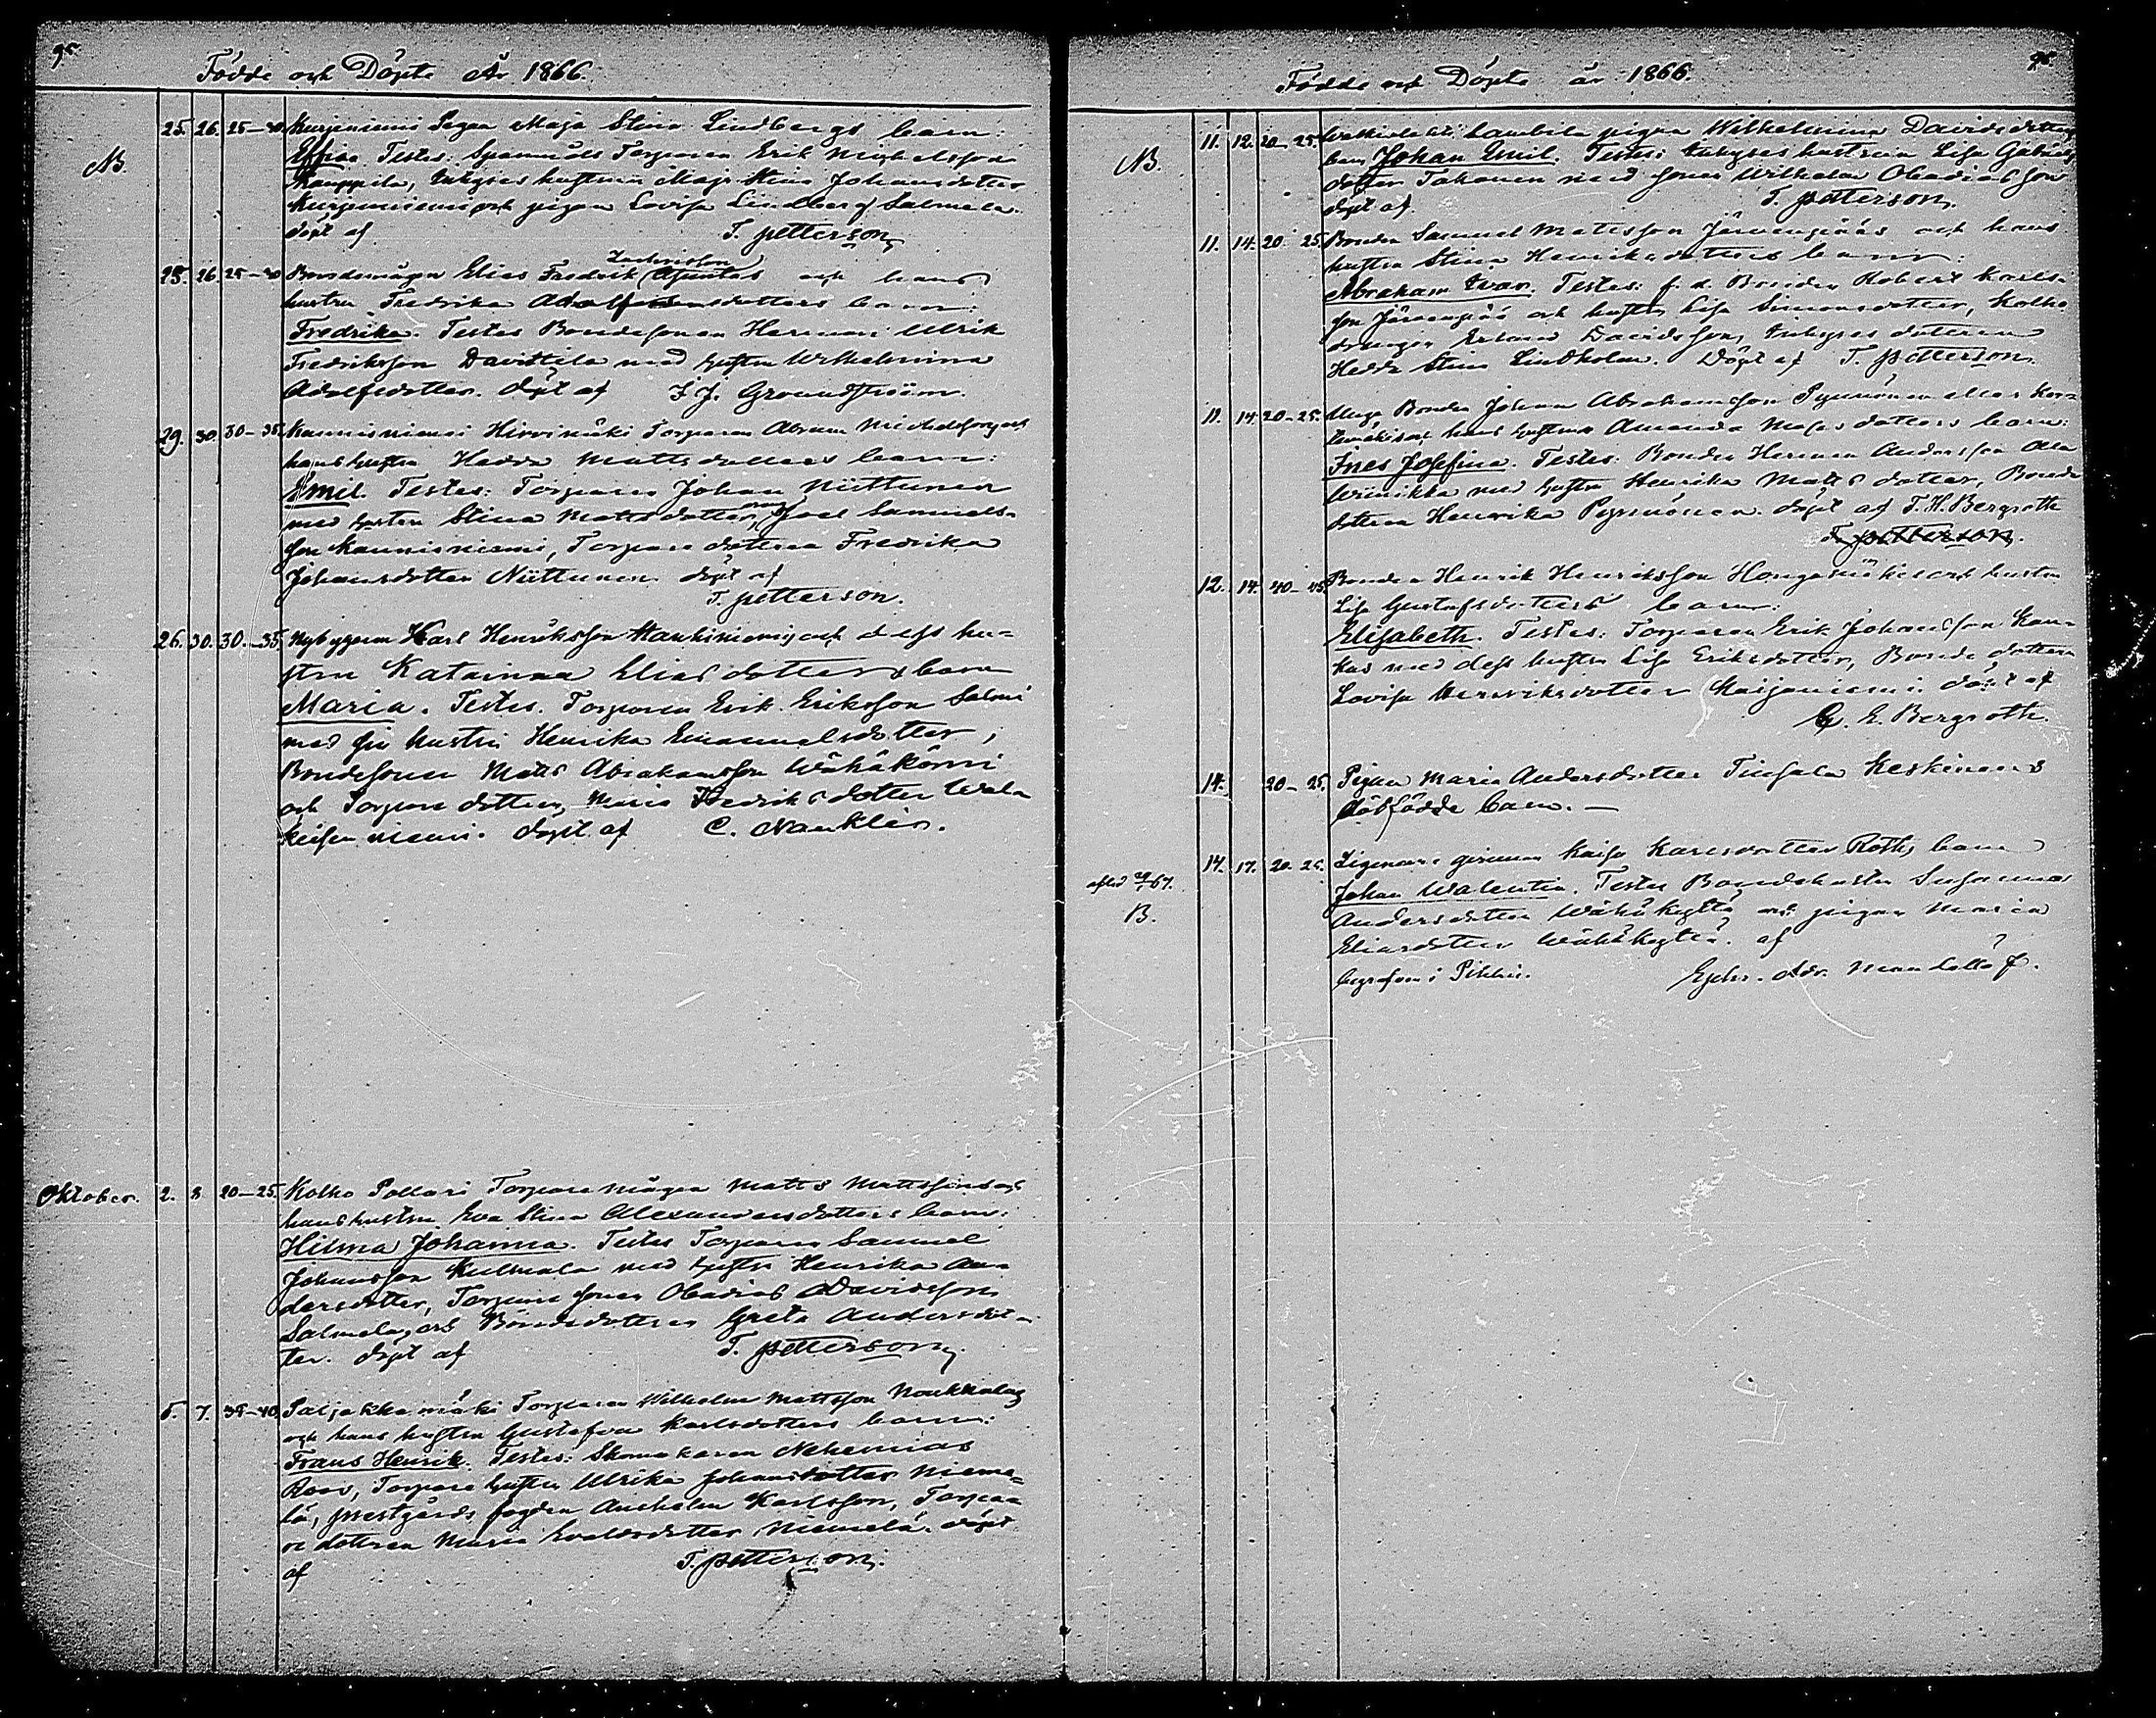 95.
Födde och Döpte År 1866.
NB. 25. 26. 25-30. Kurjeniemi Pigan Maja Stina Lindbergs barn:
Effina Testes: Torparen Erik Michelsson
Kauppila, Inhyses hustrun Maja Stina Johansdotter
Kurjeniemi och pigan Lovisa Lindberg Salmela.
döpt af T. petterson,
25. 26. 25-30 Bondemågen Elias Fredrik och hans
hustru Fredrika Adolfsdotters barn:
Fredrika. Testes Bondesonen Herman Ulrik
Fredriksson Davittila med hustru Wilhelmina
Adolfsdotter. döpt af F. J. Grundström.
29. 30. 30-35. Kaunisniemi Hirvimäki Torparen Abram Michelsson och
hans hustru Hedda Mattsdotters barn:
Emil. Testes: Torparen Johan Niittunen
med hustru Stina Mattsdotter, Joel Samuels-
son Kaunisniemi, Torpare dottern Fredrika
Johansdotter Niittunen döpt af
T. petterson.
26. 30. 30-35. Nybyggaren Karl Henriksson Haukiniemi och dess hu-
stru Katarina Eliasdotters barn
Maria. Testes. Torparen Erik Eriksson Salmi
med sin hustru Henrika Emanuelsdotter,
Bondesonen Matts Abrahamsson Wähäkömi
och Torpare dottern, Maria Fredriksdotter
niemi. döpt af C. Nauklér.
Oktober. 2. 8 20-25. Kolho Pollari Torpare mågen Matts Mattsson och
hans hustru Eva Stina Alexandersdotters barn:
Hilma Johanna. Testes Torparen Samuel
Johansson Kulmala med hustru Henrika An-
dersdotter, Torpare sonen Obadias Davidsson
Salmela, och Bondedottern Greta Andersdot-
ter. döpt af T. petterson,
5. 7. 35-40. Paljakkamäki Torparen Wilhelm Mattsson Noukkala
och hans hustru Gustafva Karlsdotters barn:
Frans Henrik. Testes: Skomakaren Nehemias
Roos, Torpare hustru Ulrika Johansdotter Nieme-
lä, prestgårds fogden Anshelm Karlsson, Torpa-
re dottern Maria Evaldsdotter Niemelä. döpt
af T. petterson.
96.
Födde och Döpte år 1866.
NB. 11. 12. 20-25. Lambila pigan Wilhelmina Davidsdotters
barn Johan Emil. Testes: Inhyses hustrun Lisa Gabriels
dotter Takanen med sonen Wilhelm Obadiasson
döpt af T. petterson,
11. 14. 20 25. Bonden Samuel Matsson Järvenpää och hans
hustru Stina Henriksdotters barn:
Abraham Ivar. Testes: f. d. Bonden Robert Karls-
son Järvenpää och hustru Lisa Simonsdotter, Kolho
drängen Davidsson, Inhyses dottern
Hedda Stina Lindholm. Döpt af T. petterson,
11. 14 20-25. Unga Bonden Johan Abrahamsson Pynnönen eller Kor-
hans hustru Amanda Mosesdotters barn:
Ines Josefina. Testes: Bonden Herman Andersson Ala
Wiinikka med hustru Henrika Mattsdotter, Bonde
dottren Henrika Pynnönen. döpt af T. H. Bergroth
T. petterson.
12. 14. 40-45. Bonden Henrik Henriksson Hongamäki och hustru
Lisa Gustafsdotters barn:
Elisabeth. Testes: Torparen Erik Johansson Kan-
kas med dess hustru Lisa Eriksdotter, Bonde dottren
Lovisa Henriksdotter Kaijaniemi. döpt af
C. E. Bergroth
14. 20-25. Pigan Maria Andersdotter Tuisala Keskinens
dödfödde barn. —
B. 14. 17. 20-25. Kaisa Karlsdotter Roths barn
Johan Walentin. Testes Bondehustru Susanna
Andersdotter Wähäkyttä och pigan Maria
Eliasdotter Wähäkyttä. af